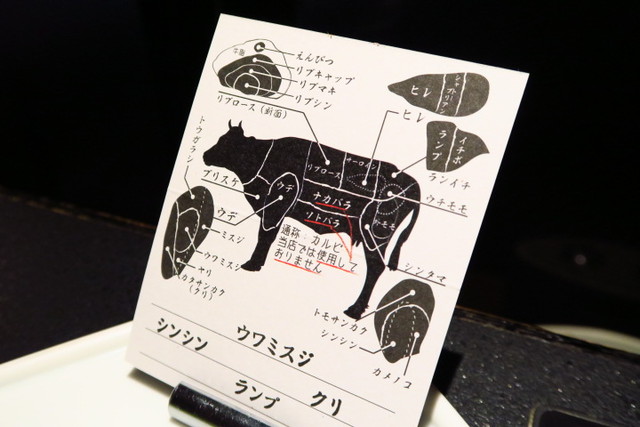 えんぴつ
リブキャップ
リブマキ
リブシン
リブロース(断面)
ヒレ
シャトーブリアン
ヒレ
ランプ
イチボ
ランイチ
トウガラシ
ブリスケ
ウデ
リブロース
サーロイン
ナカバラ
ソトバラ
ウチモモ
トモモ
通称:カルビ
当店では使用して
おりません
ウデ
ミスジ
ウワミスジ
ヤリ
カタサンカク
(クリ)
シンタマ
トモサンカク
シンシン
カメノコ
シンシン
ウワミスジ
ランプ
クリ